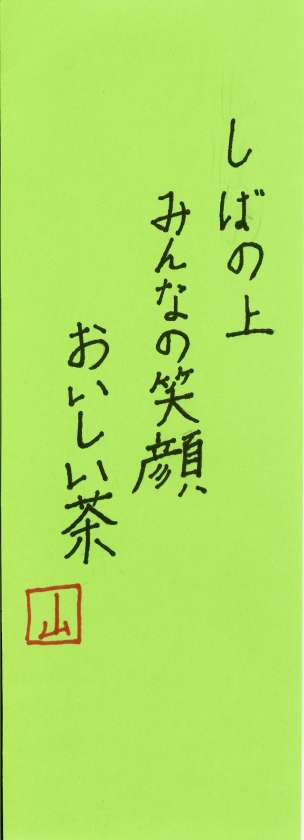 しばの上
みんなの笑顔
おいしい茶
山